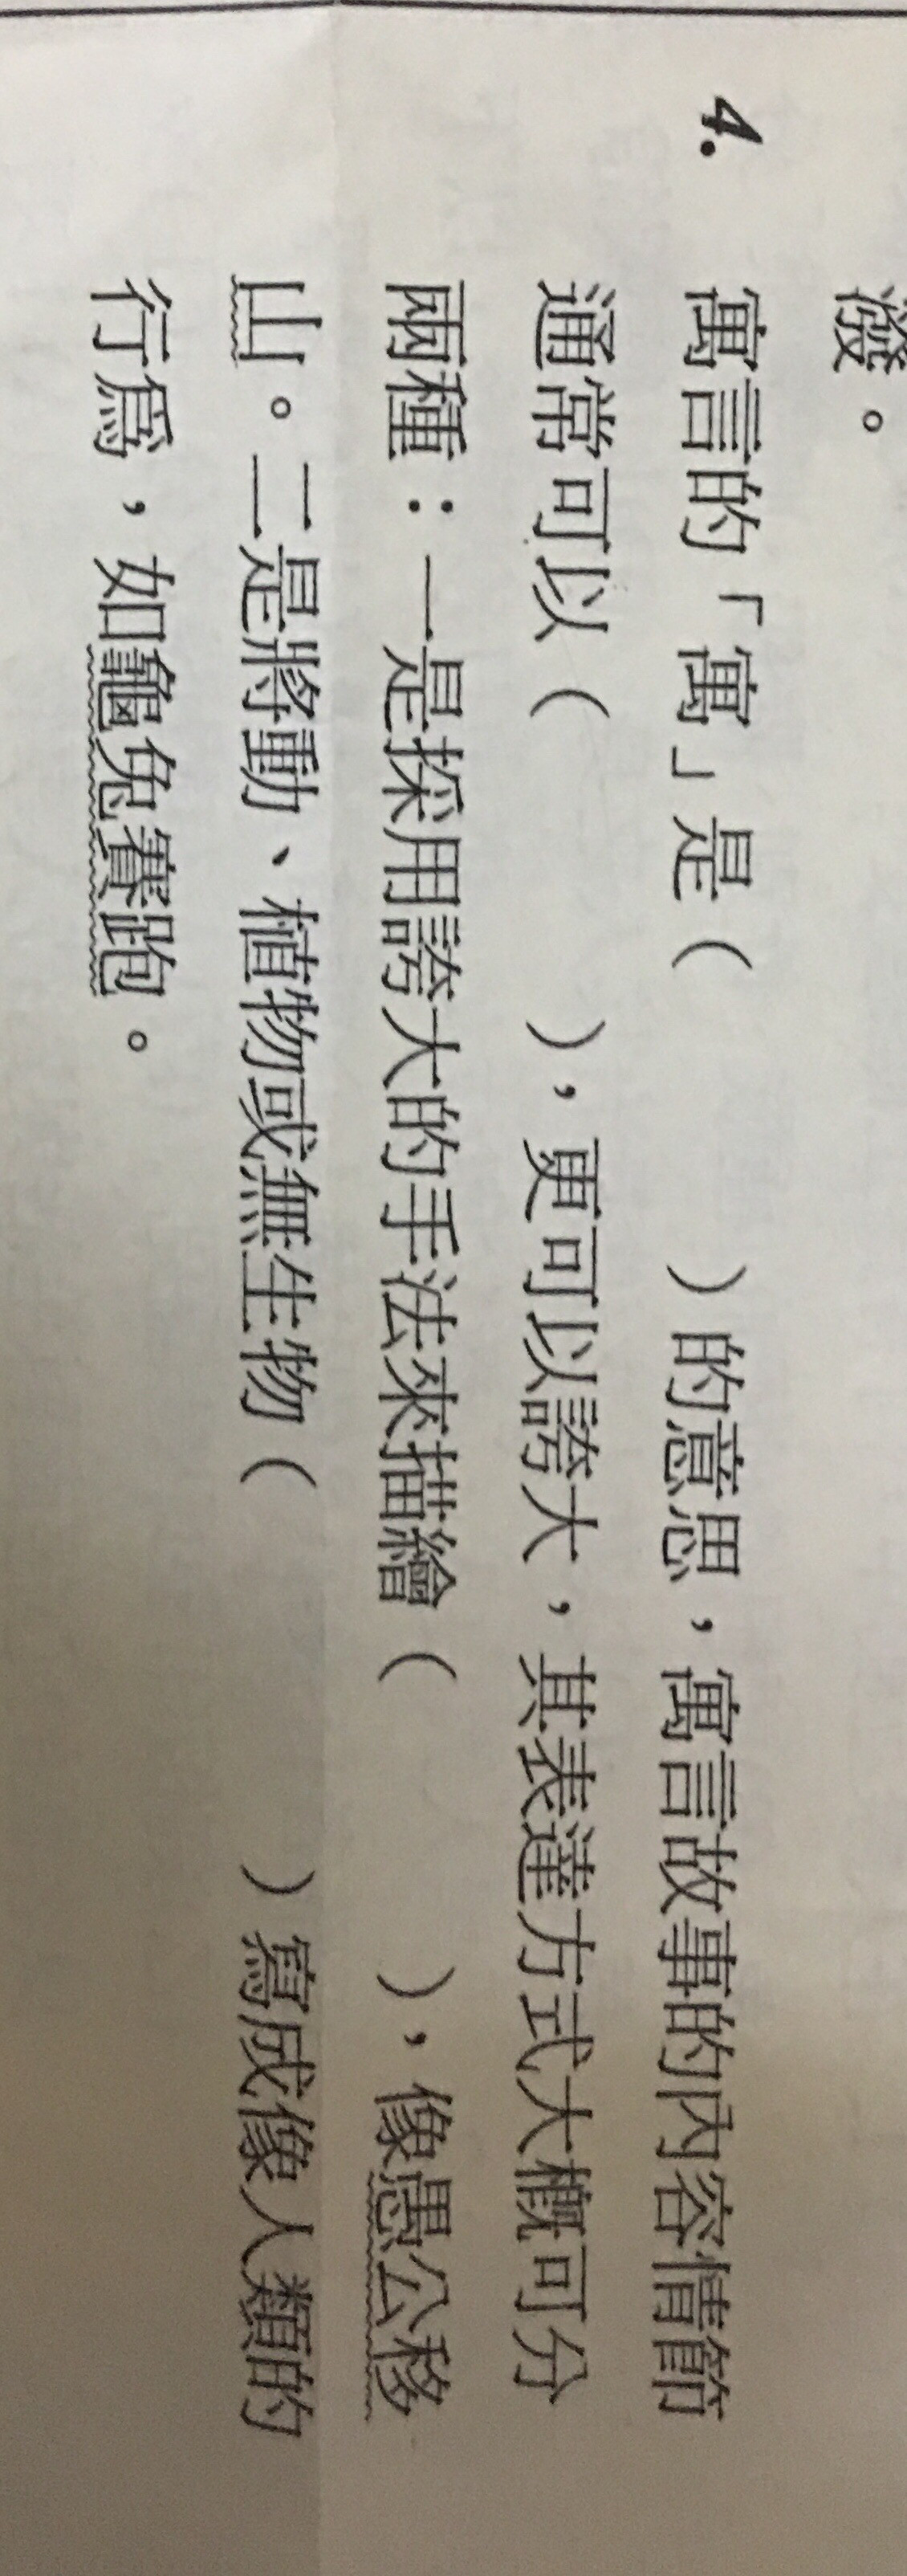 潑。
4. 寓言的「寓」是（　　　）的意思，寓言故事的內容情節
通常可以（　　　），更可以誇大，其表達方式大概可分
兩種：一是採用誇大的手法來描繪（　　　），像愚公移
山。二是將動、植物或無生物（　　　）寫成像人類的
行為，如龜兔賽跑。